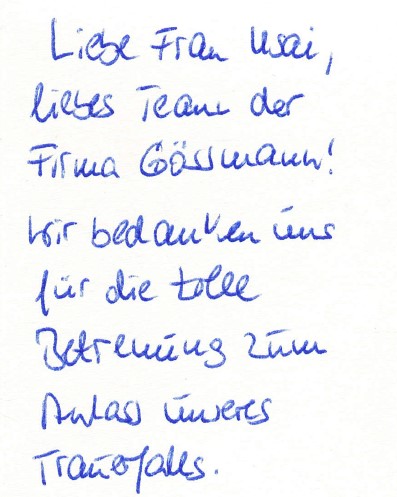 Liebe Frau Usai,
liebes Team der
Firma Gössmann!
Wir bedanken uns
für die tolle
Betreuung zum
Anlass unseres
Trauerfalls.